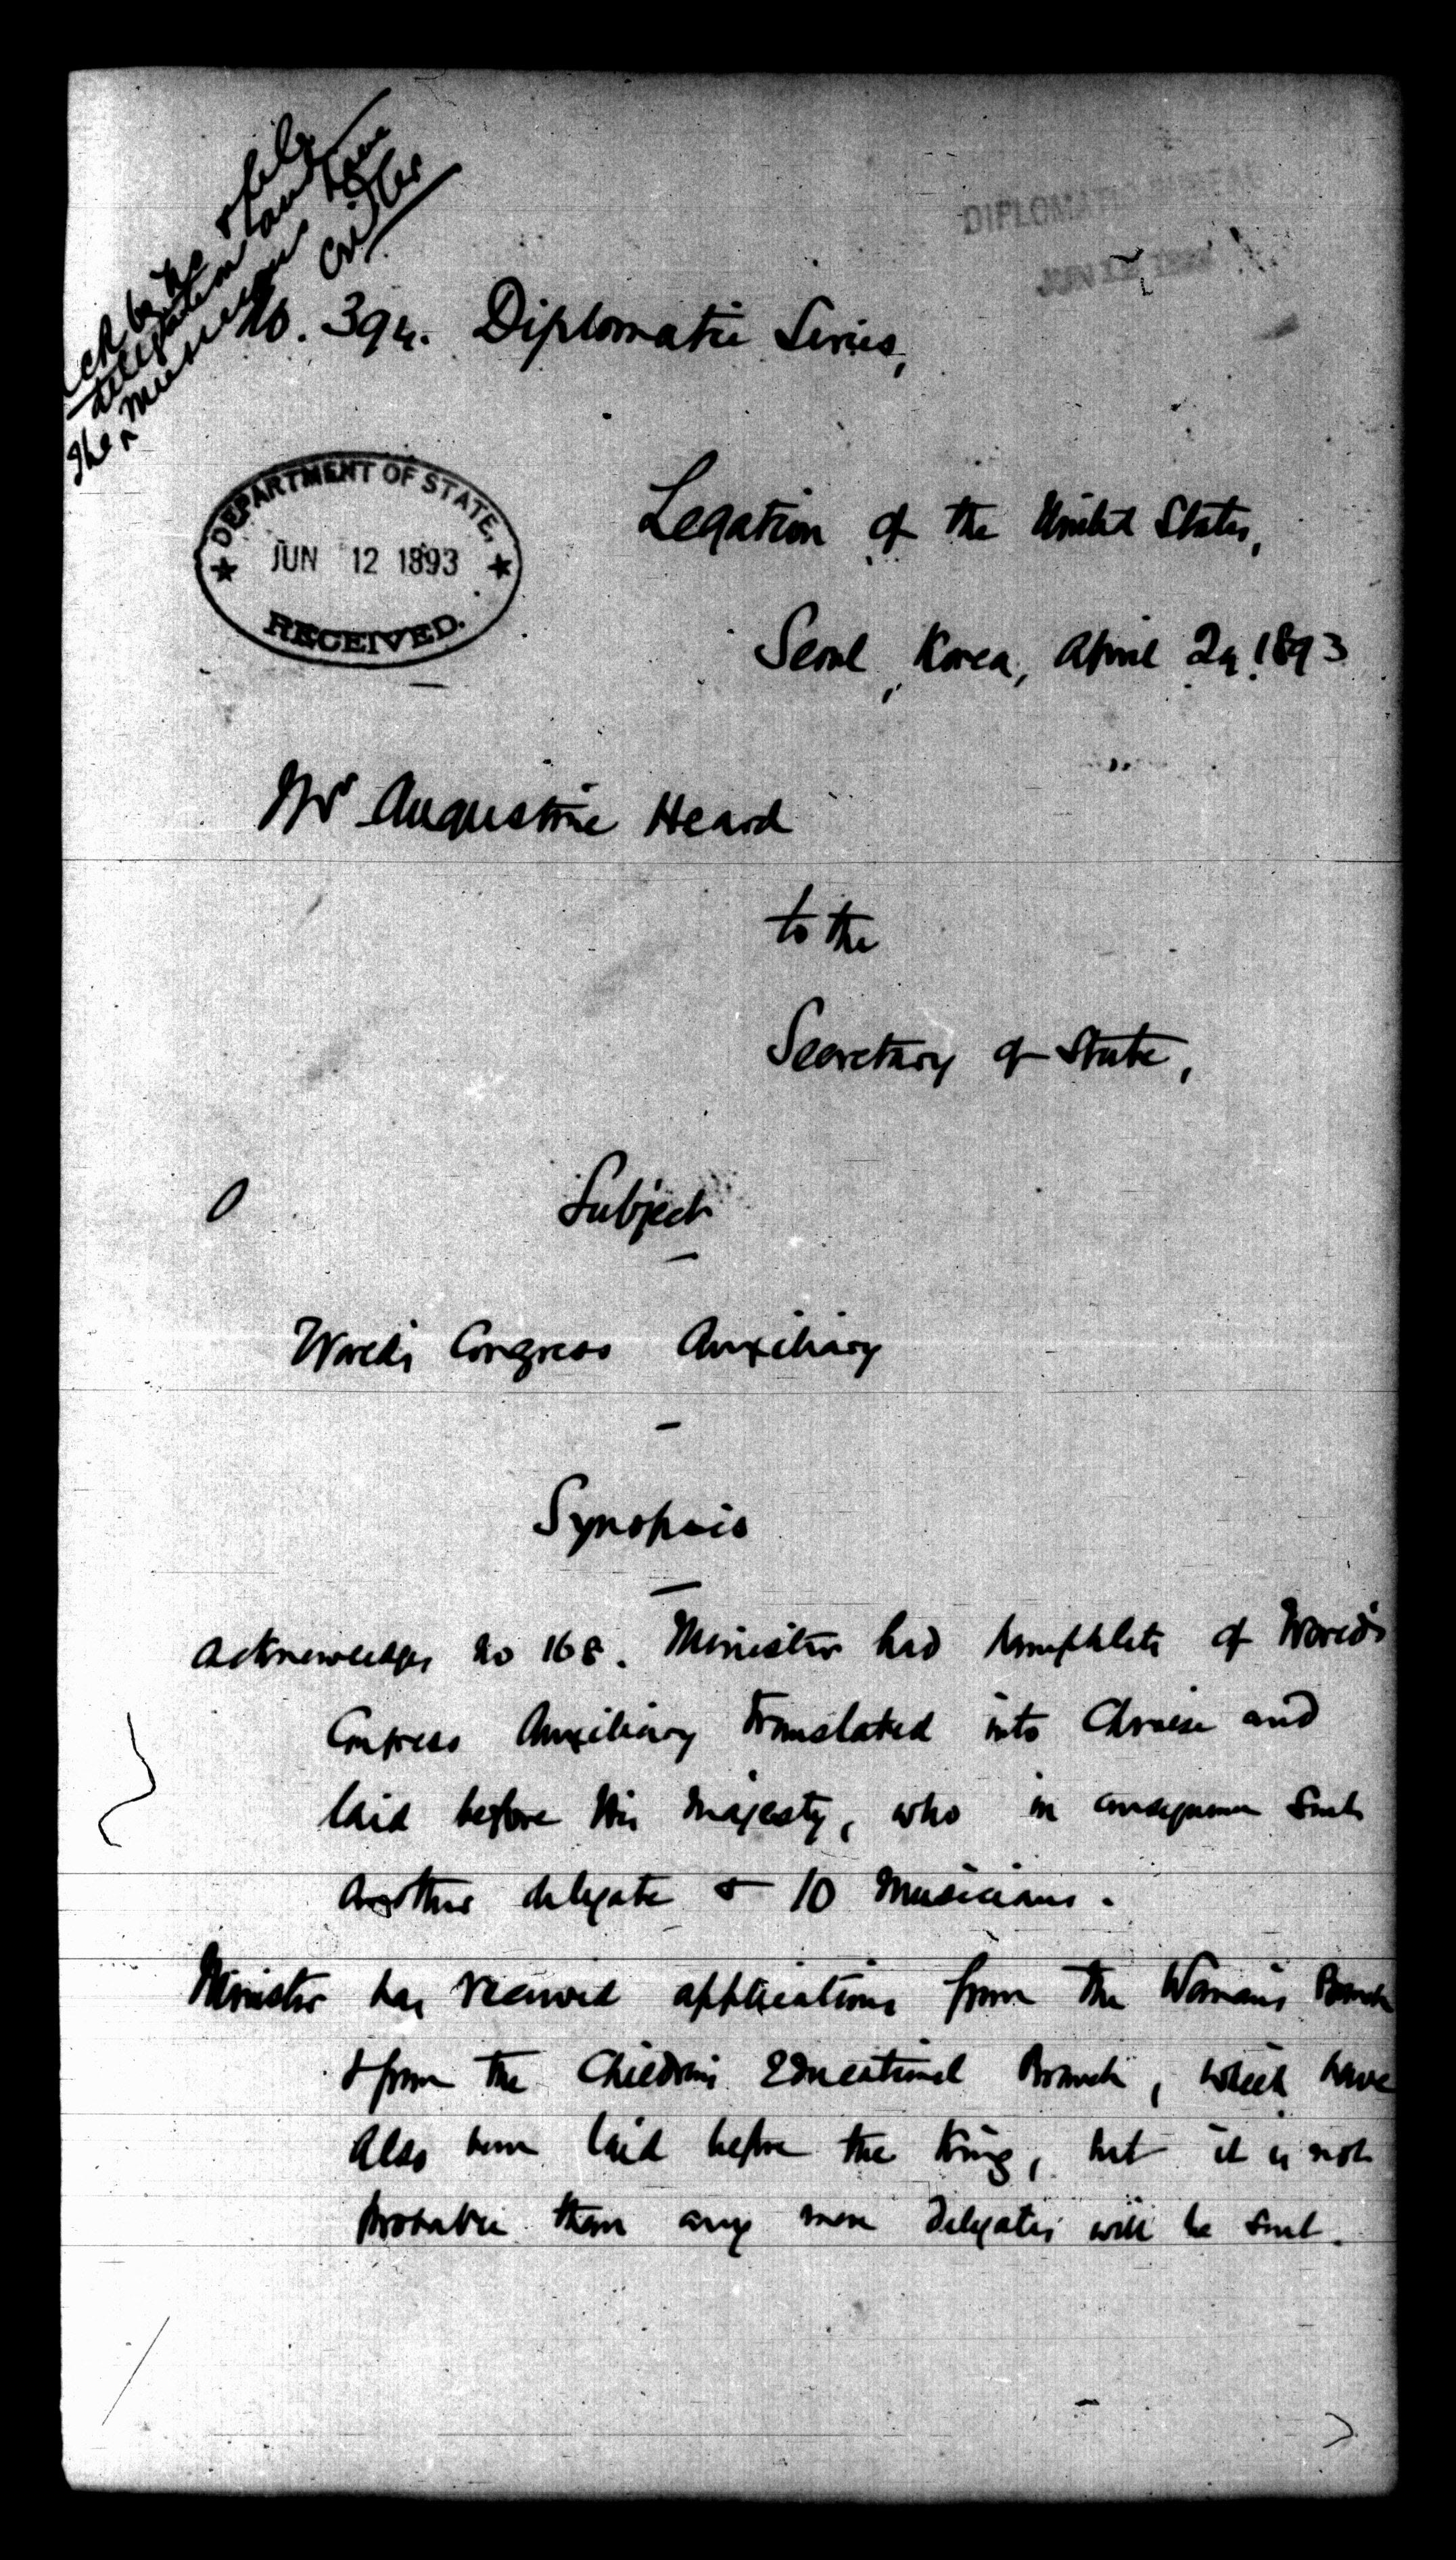 ack by
& file
delegation and have
The musicians
DIPLOMATIC BUREAU
JUN 12 1893
No. 394. Diplomatic Series,
DEPARTMENT OF STATE,
JUN 12 1893
RECEIVED.
Legation of the United States,
Seoul, Korea, April 29, 1893
Mr Augustine Heard
to the
Secretary of State,
Subject
World's Congress Auxiliary
Synopsis
Acknowledges No 168. Minister had pamphlets of World's
Congress Auxiliary translated into Chinese and
laid before His Majesty, who in consequence sends
another delegate & 10 musicians.
Minister has received applications from the Woman's Branch
& from the Children's Educational Branch, which have
also been laid before the King, but it is not
probable that any more delegates will be sent.